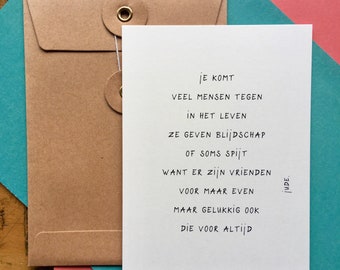 je komt
veel mensen tegen
in het leven
ze geven blijdschap
of soms spijt
want er zijn vrienden
voor maar even
maar gelukkig ook
die voor altijd
jude.